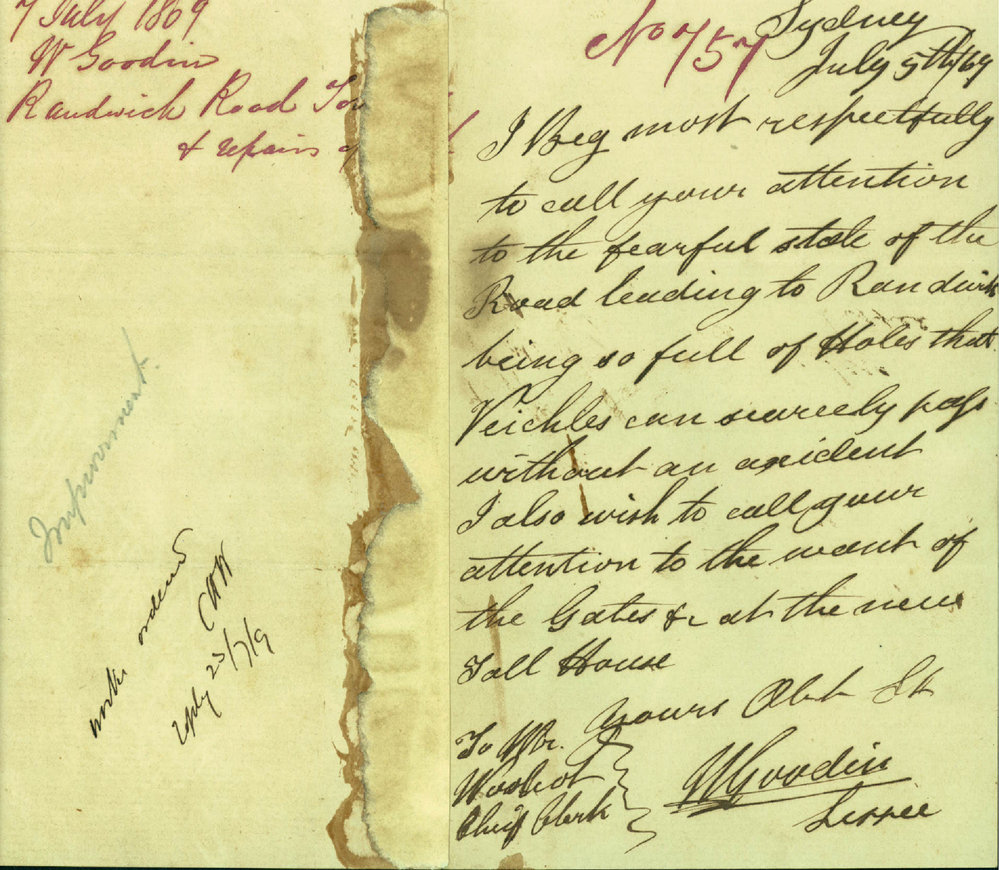 7 July 1869
W Goodin
Randwick Road
& repairs
Improvement.
works ordered
CHW
23/7/9
No 757
Sydney
July 5th/69
I Beg most respectfully
to call your attention
to the fearful state of the
Road leading to Randwick
being so full of Holes that
Veichles can scarcely pass
without an axident
I also wish to call your
attention to the want of
the Gates &c at the new
Toll House
yours Obt St
To Mr.
Chief Clerk
WGoodin
Lessee